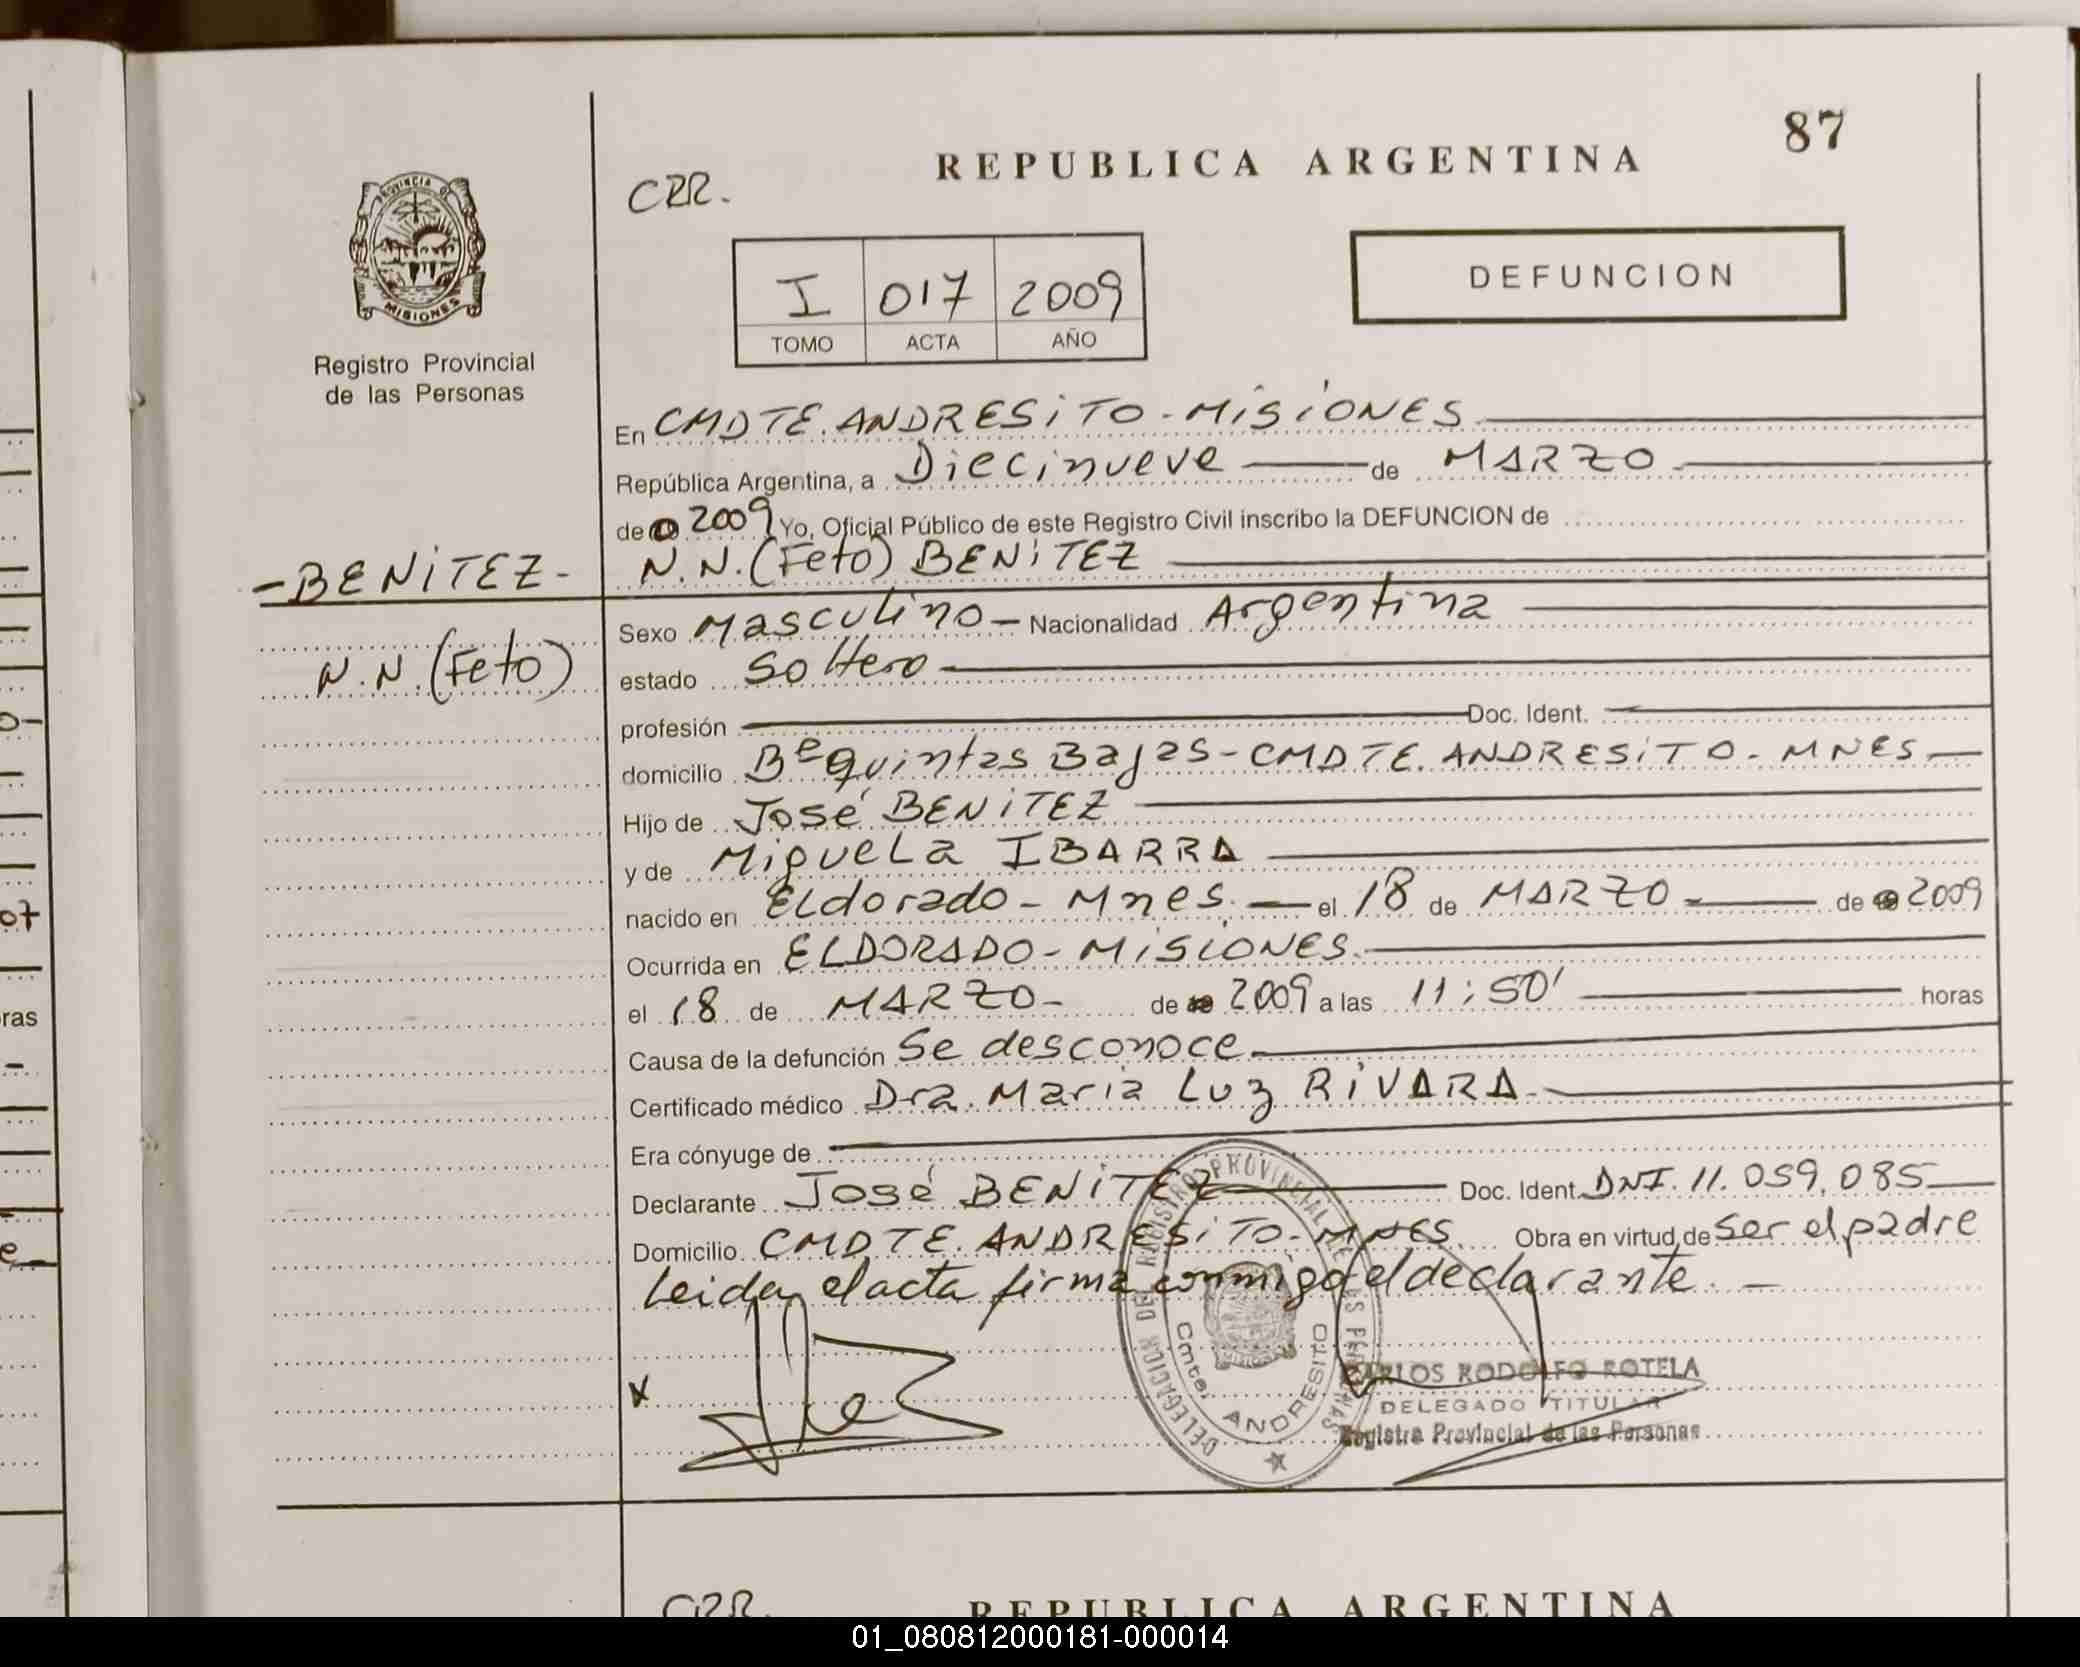 87
REPUBLICA ARGENTINA
CRR.
DEFUNCION
PROVINCIA DE
MISIONES
Registro Provincial
de las Personas
I 017 2009
TOMO ACTA AÑO
En CMDTE. ANDRESiTO - MiSiONES
República Argentina, a Diecinueve de MARZO
de 2009 Yo, Oficial Público de este Registro Civil inscribo la DEFUNCION de
- BENiTEZ - N.N. (Feto) BENiTEZ
Sexo Masculino - Nacionalidad Argentina
N.N. (Feto)
estado Soltero
profesión Doc. Ident.
domicilio Bº Quintas Bajas - CMDTE. ANDRESiTO - MNES
Hijo de José BENiTEZ
y de Miguela IBARRA
nacido en Eldorado - Mnes. el 18 de MARZO de 2009
Ocurrida en ELDORADO - MiSiONES.
el 18 de MARZO - de 2009 a las 11:50' horas
Causa de la defunción Se desconoce
Certificado médico Dra. Maria Luz RiVARA
Era cónyuge de
Declarante José BENiTEZ Doc. Ident. DNI. 11.059.085
Domicilio CMDTE. ANDRESiTO - MNES. Obra en virtud de Ser el padre
Leida el acta firma conmigo el declarante. -
DELEGACION DEL REGISTRO PROVINCIAL DE LAS PERSONAS
Cmte. ANDRESITO
x
CARLOS RODOLFO ROTELA
DELEGADO TITULAR
Registro Provincial de las Personas
CRR.
REPUBLICA ARGENTINA
07
ras
e
01_080812000181-000014